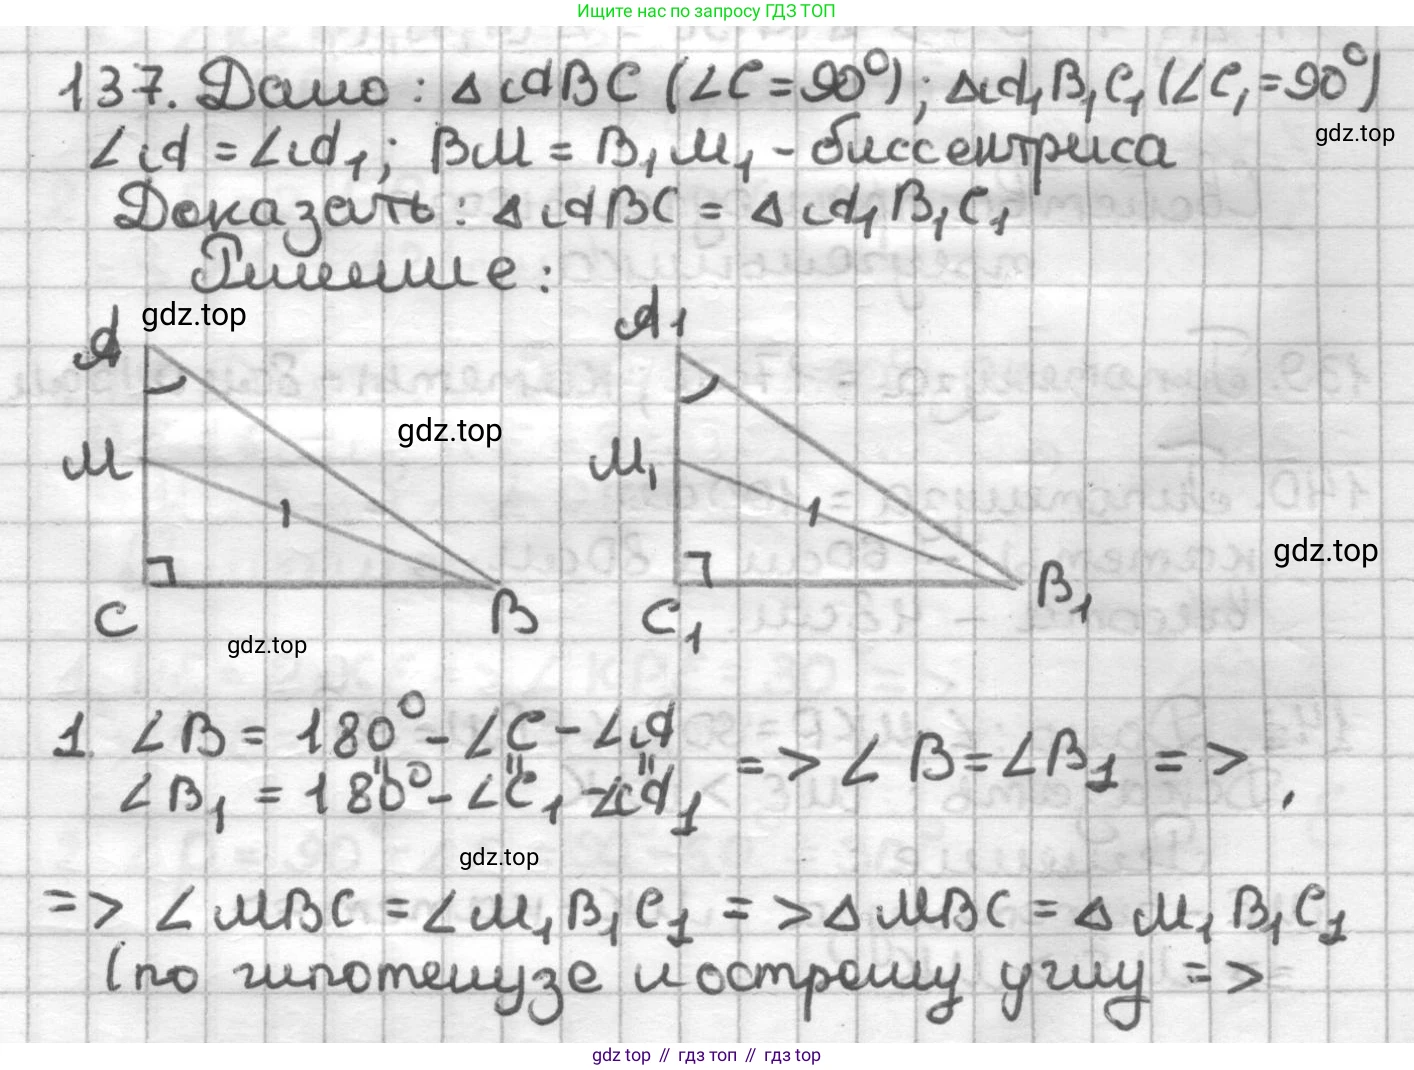 Ищите нас по запросу ГДЗ ТОП
137. Дано: △ABC (∠C=90°); △A₁B₁C₁ (∠C₁=90°)
gdz.top
∠A = ∠A₁; BM = B₁M₁ - биссектриса
Доказать: △ABC = △A₁B₁C₁
Решение:
gdz.top
A A₁
gdz.top
M M₁
1 1
gdz.top
C B C₁ B₁
gdz.top
1. ∠B = 180° - ∠C - ∠A
=> ∠B = ∠B₁ =>,
∠B₁ = 180° - ∠C₁ - ∠A₁
gdz.top
=> ∠MBC = ∠M₁B₁C₁ => △MBC = △M₁B₁C₁
(по гипотенузе и острому углу =>
gdz top // гдз топ // gdz top